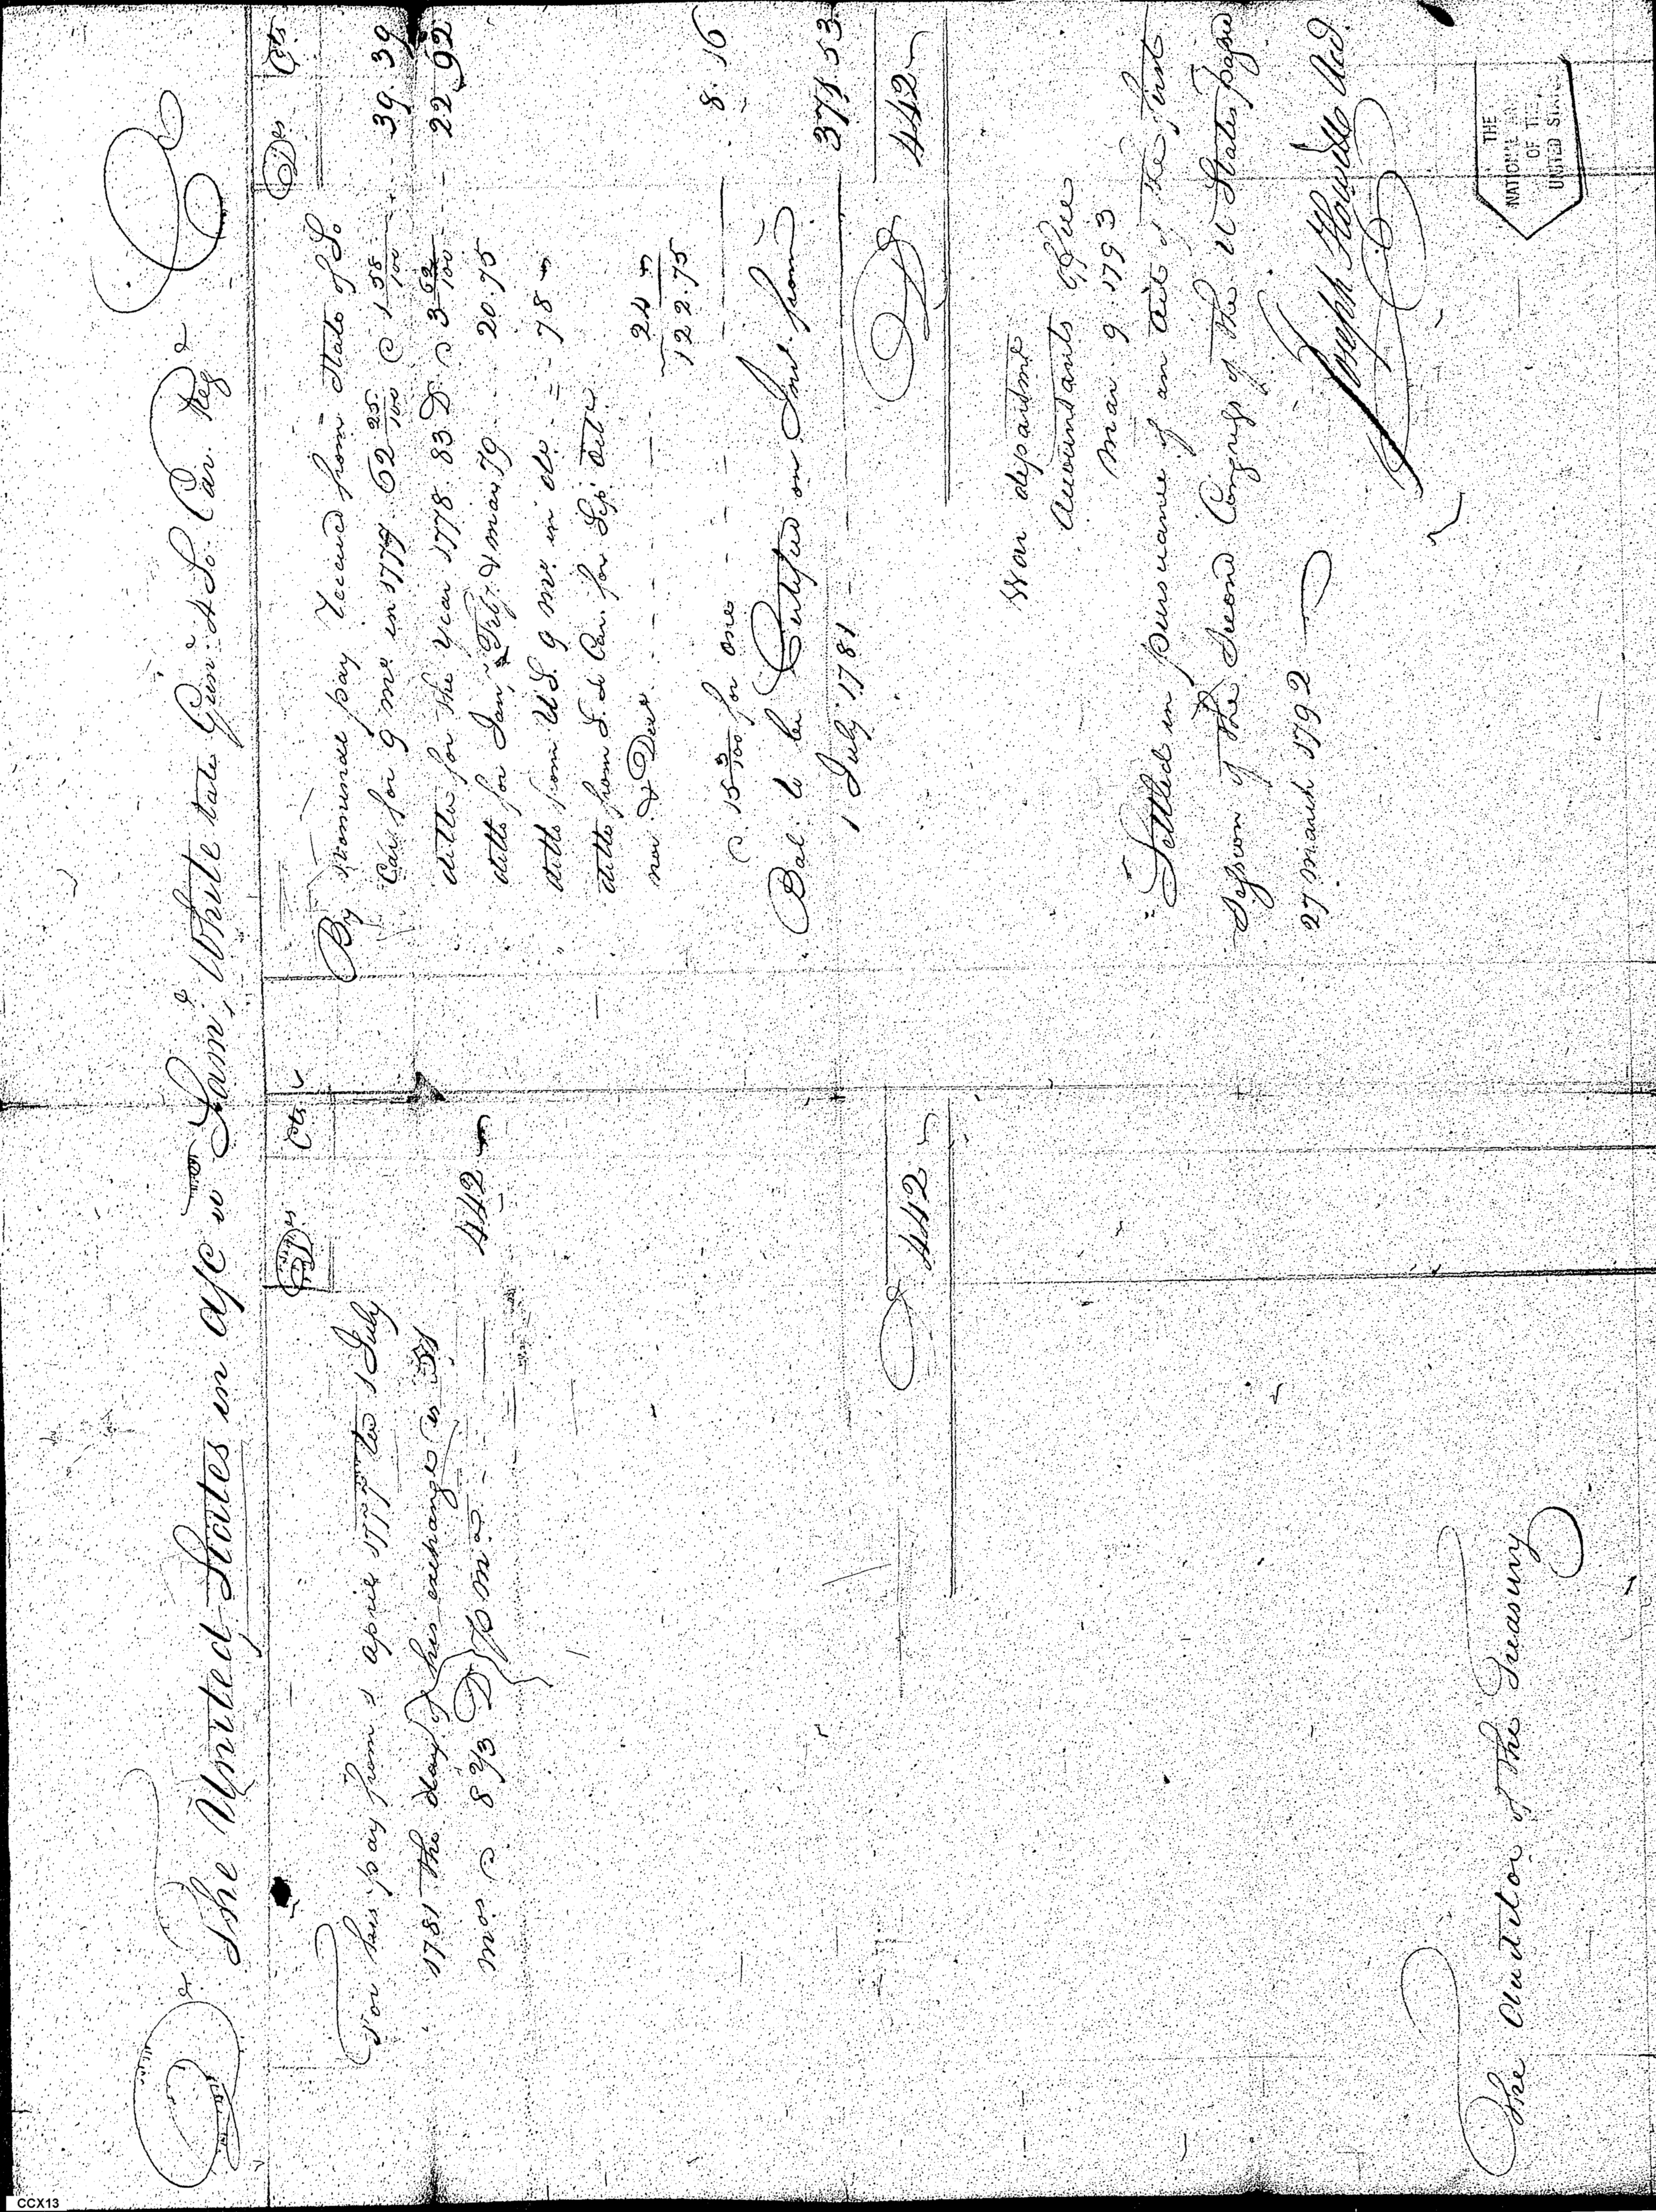 Dr The United States in a/c wth Saml White late Gunr 4 So. Car. Reg. Cr
Drs Cts
For his pay from 1 april 1777 to 1 July
1781 the day of his exchange is 51
mos @ 8 2/3 Dr p mo — 442
442
The Auditor of the Treasury
Drs Cts
By nominal pay received from State of So
Car. for 9 mos in 1777. 62 25/100 @ 1 58/100 39.39
ditto for the year 1778. 83 D. @ 3 62/100 22.92
ditto for Jany Feby & Mar 79 20.75
ditto from U.S. 9 mos. in do. 78
ditto from S. Car. for Sepr Octr
nov & Decr 24
122.75
@ 15 3/100 for one 8.16
Bal. to be Certified on Int. from
1 July 1781 371.53
442
War department
Accountants Office
Mar 9. 1793
Settled in pursuance of an act of the first
Session of the Second Congress of the U States passed
27 March 1792
Joseph Howell Acct.
THE
NATIONAL
OF THE
UNITED STATES
CCX13